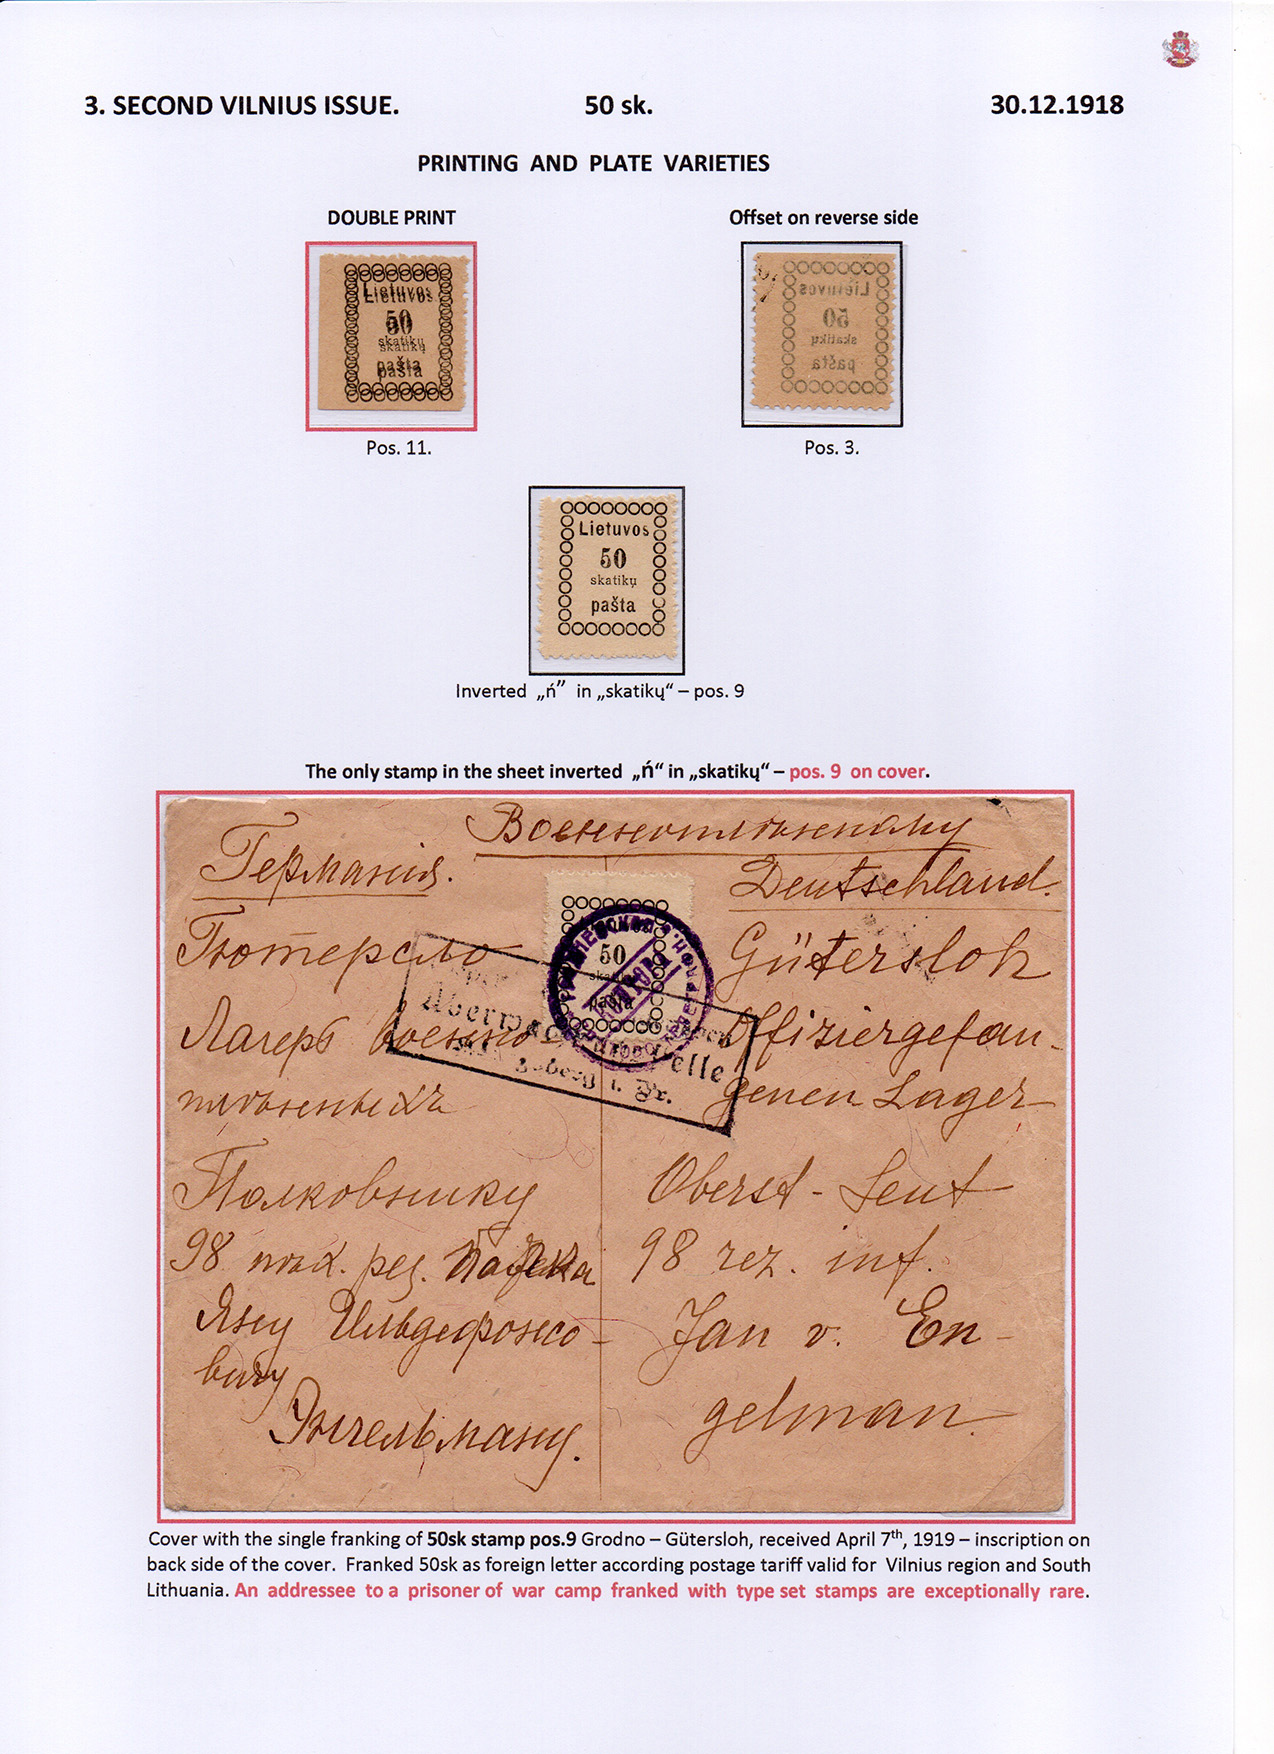 3. SECOND VILNIUS ISSUE. 50 sk. 30.12.1918
PRINTING AND PLATE VARIETIES
DOUBLE PRINT
Offset on reverse side
Lietuvos
50
skatikų
pašta
Lietuvos
50
skatikų
pašta
Pos. 11.
Pos. 3.
Lietuvos
50
skatikų
pašta
Inverted „ń” in „skatikų“ – pos. 9
The only stamp in the sheet inverted „ń“ in „skatikų“ – pos. 9 on cover.
Военнопленному
Германія.
Deutschland.
Гютерсло
Gütersloh
50
pašta
Лагерь военно
Offiziergefan-
пленныхъ
genen Lager
elle
i. Pr.
Полковнику
Oberst - Leut
98 пех. рез.
98 rez. inf.
Яну Ильдефонсо-
Jan v. En-
вичу
gelman
Энгельману.
Cover with the single franking of 50sk stamp pos.9 Grodno – Gütersloh, received April 7th, 1919 – inscription on
back side of the cover. Franked 50sk as foreign letter according postage tariff valid for Vilnius region and South
Lithuania. An addressee to a prisoner of war camp franked with type set stamps are exceptionally rare.